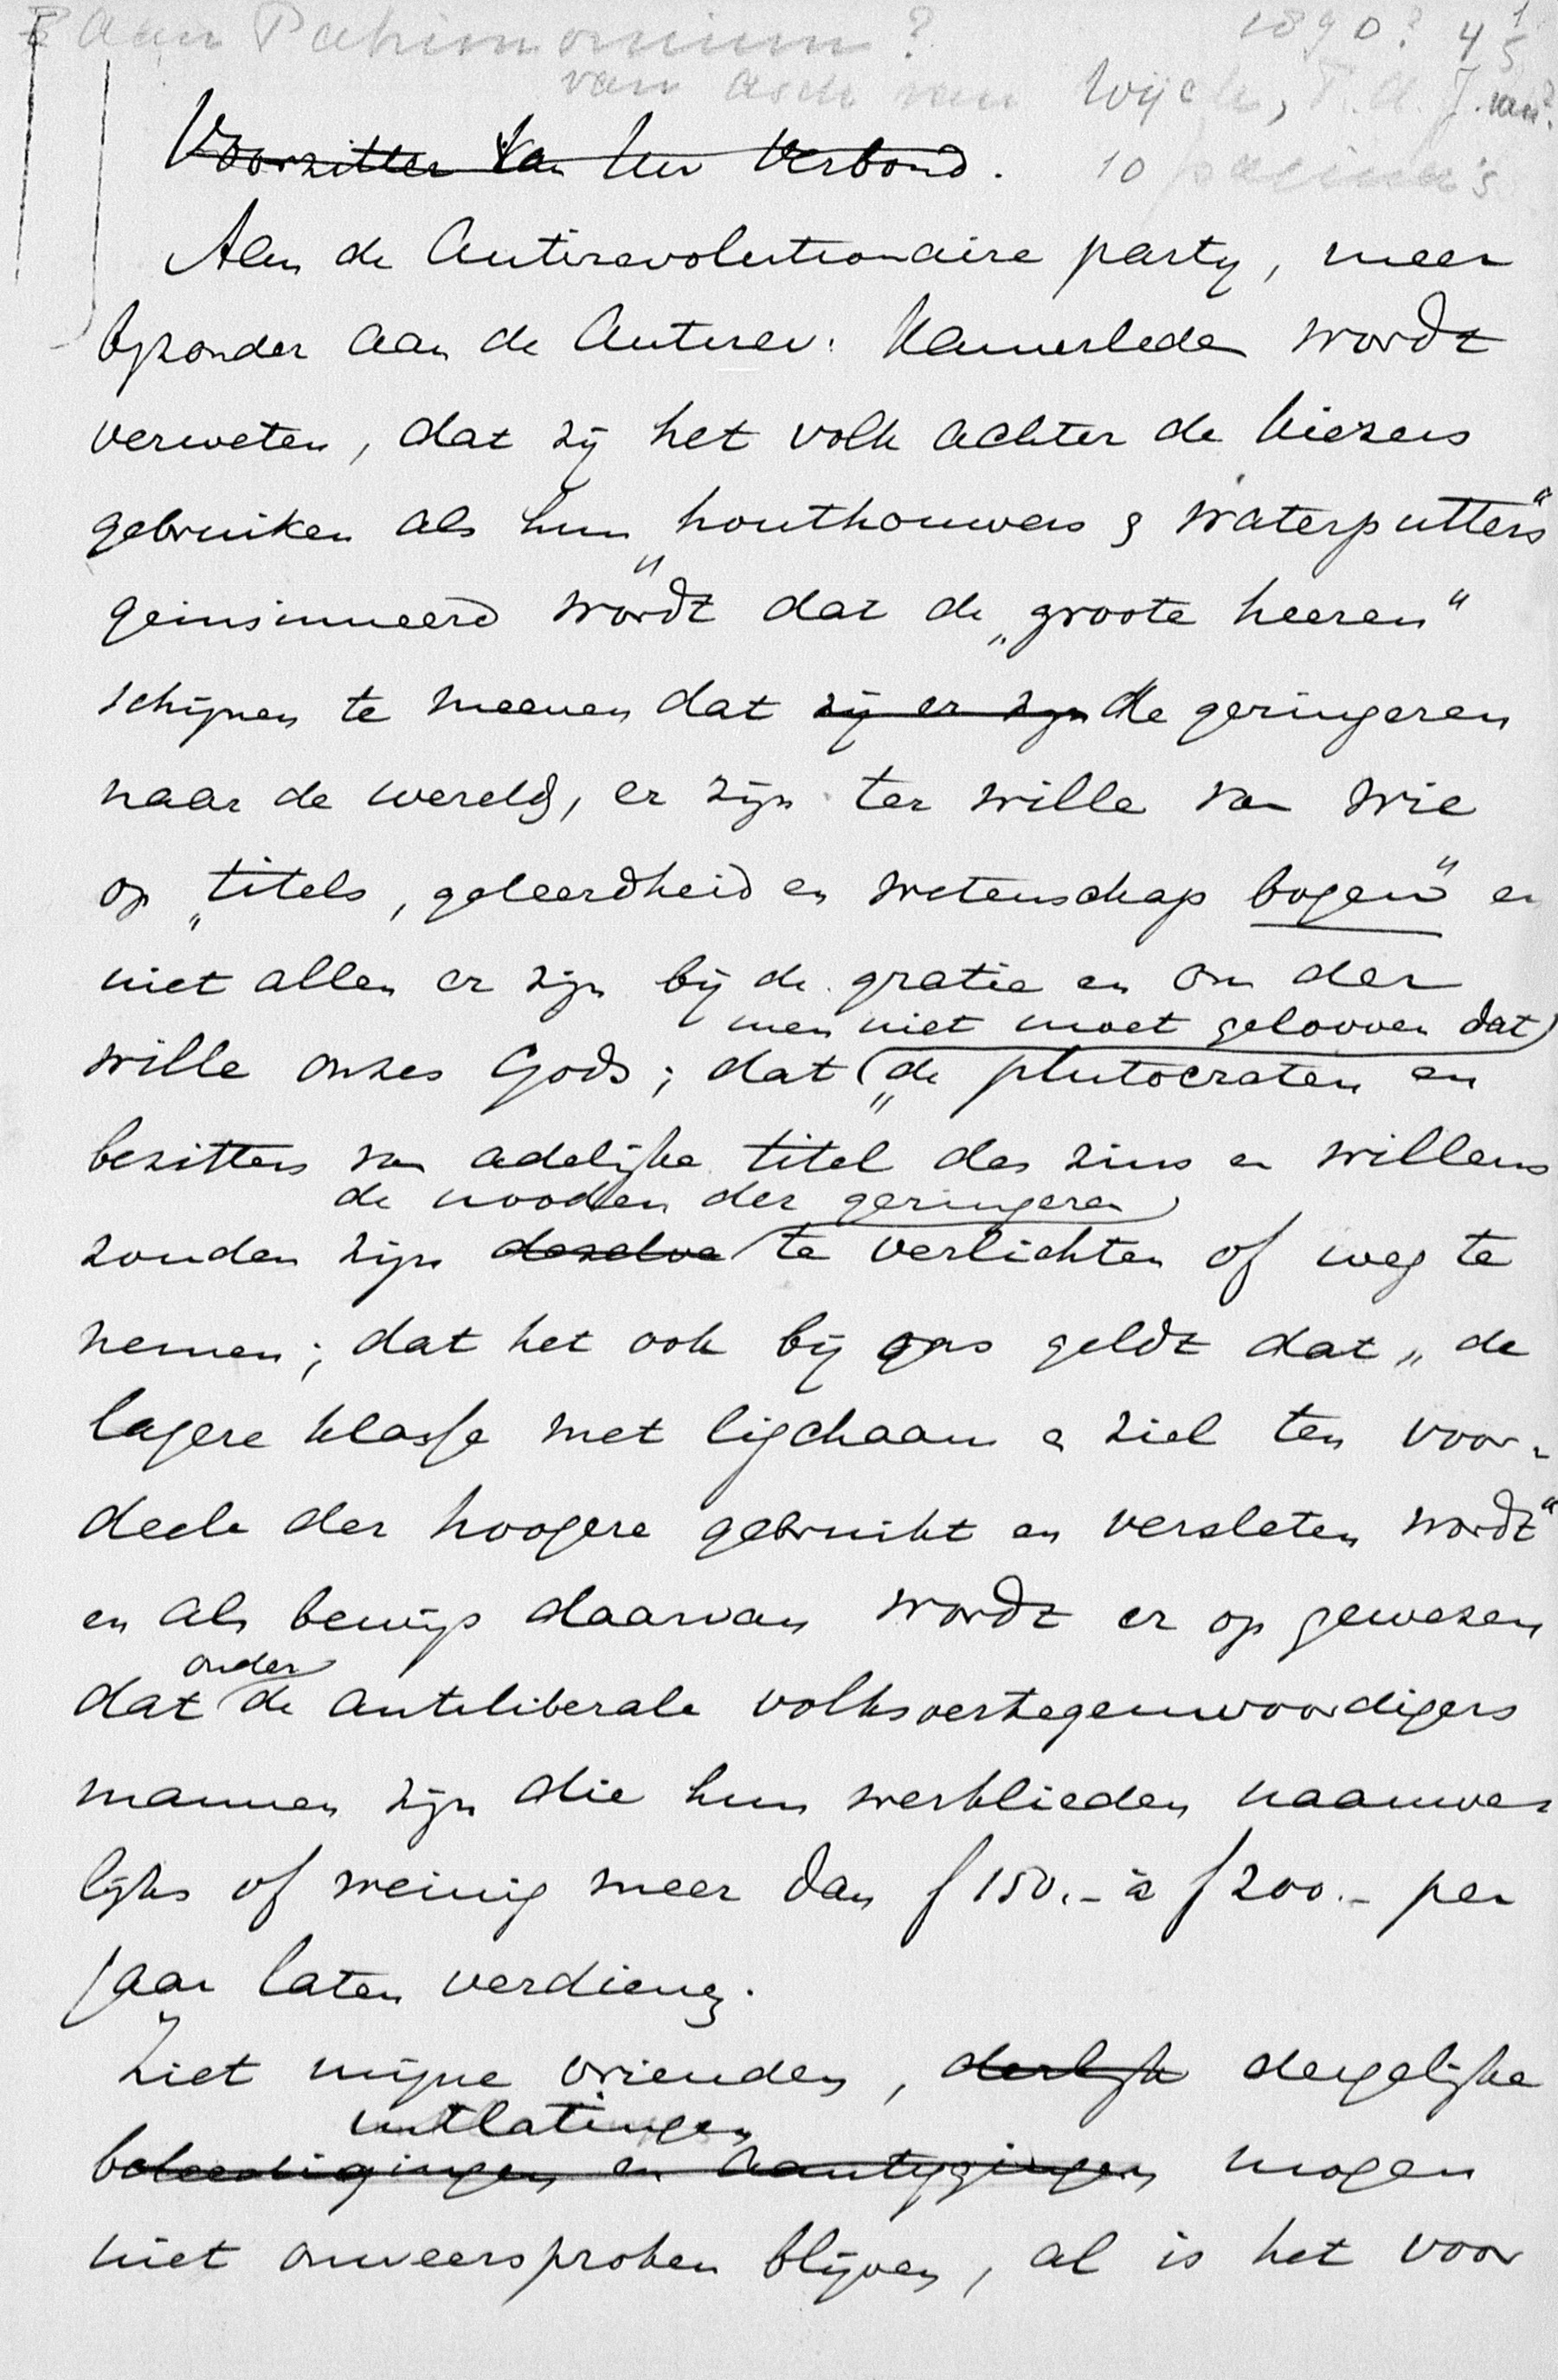 Aan Patrimonium? 1890? 45 1
van Asch van Wijck, T.A.J. van?
Voorzitter van Uw Verbond. 10 pagina's
Aan de Antirevolutionaire party, meer
byzonder aan de Antirev: Kamerleden wordt
verweten, dat zij het volk achter de kiezers
gebruiken als hun „houthouwers & waterputters"
geinsinueerd wordt dat de „groote heeren"
schijnen te meenen dat zij er zijn de geringeren
naar de wereld, er zijn ter wille van wie
op „titels, geleerdheid en wetenschap bogen" en
niet allen er zijn bij de gratie en om der
men niet moet gelooven dat
wille onzes Gods; dat „de plutocraten en
bezitters van adelijke titel des zins en willens
de nooden der geringeren
zouden zijn dezelve te verlichten of weg te
nemen; dat het ook bij ons geldt dat „de
lagere klasse met ligchaam & ziel ten voor-
deele der hoogere gebruikt en versleten wordt"
en als bewijs daarvan wordt er op gewezen
onder
dat de antiliberale volksvertegenwoordigers
mannen zijn die hun werklieden naauwe
lijks of weinig meer dan f 150.- à f 200.- per
jaar laten verdienen.
Ziet mijne vrienden, derlijk dergelijke
uitlatingen
beleedigingen en aantygingen mogen
niet onweersproken blijven, al is het voor